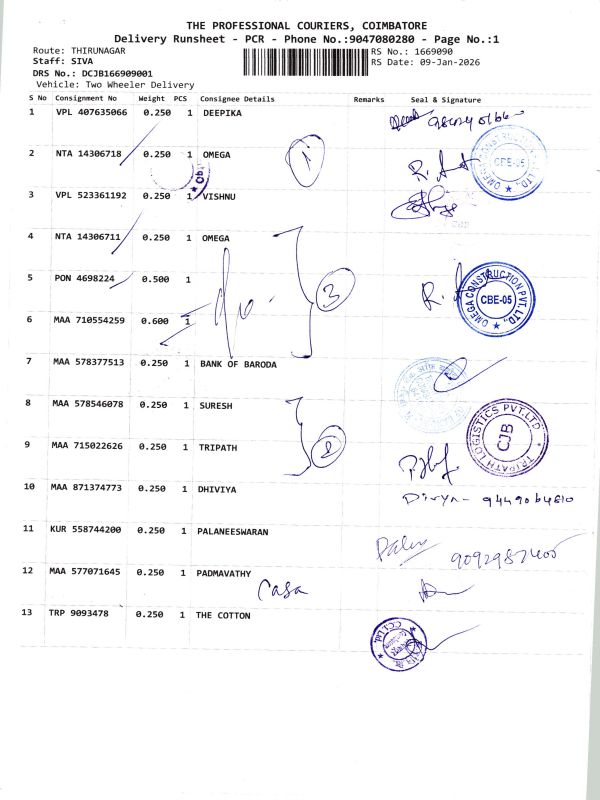 THE PROFESSIONAL COURIERS, COIMBATORE
Delivery Runsheet - PCR - Phone No.:9047080280 - Page No.:1
Route: THIRUNAGAR
RS No.: 1669090
Staff: SIVA
RS Date: 09-Jan-2026
DRS No.: DCJB166909001
Vehicle: Two Wheeler Delivery
S No Consignment No Weight PCS Consignee Details Remarks Seal & Signature
1 VPL 407635066 0.250 1 DEEPIKA
2 NTA 14306718 0.250 1 OMEGA
OMEGA CONSTRUCTION PVT. LTD. CBE-05
3 VPL 523361192 0.250 1 VISHNU
4 NTA 14306711 0.250 1 OMEGA
5 PON 4698224 0.500 1
3
OMEGA CONSTRUCTION PVT. LTD. CBE-05
6 MAA 710554259 0.600 1
7 MAA 578377513 0.250 1 BANK OF BARODA
8 MAA 578546078 0.250 1 SURESH
TRIPATH LOGISTICS PVT.LTD CJB
9 MAA 715022626 0.250 1 TRIPATH
10 MAA 871374773 0.250 1 DHIVIYA
Divya - 9449064810
11 KUR 558744200 0.250 1 PALANEESWARAN
12 MAA 577071645 0.250 1 PADMAVATHY
Casa
13 TRP 9093478 0.250 1 THE COTTON